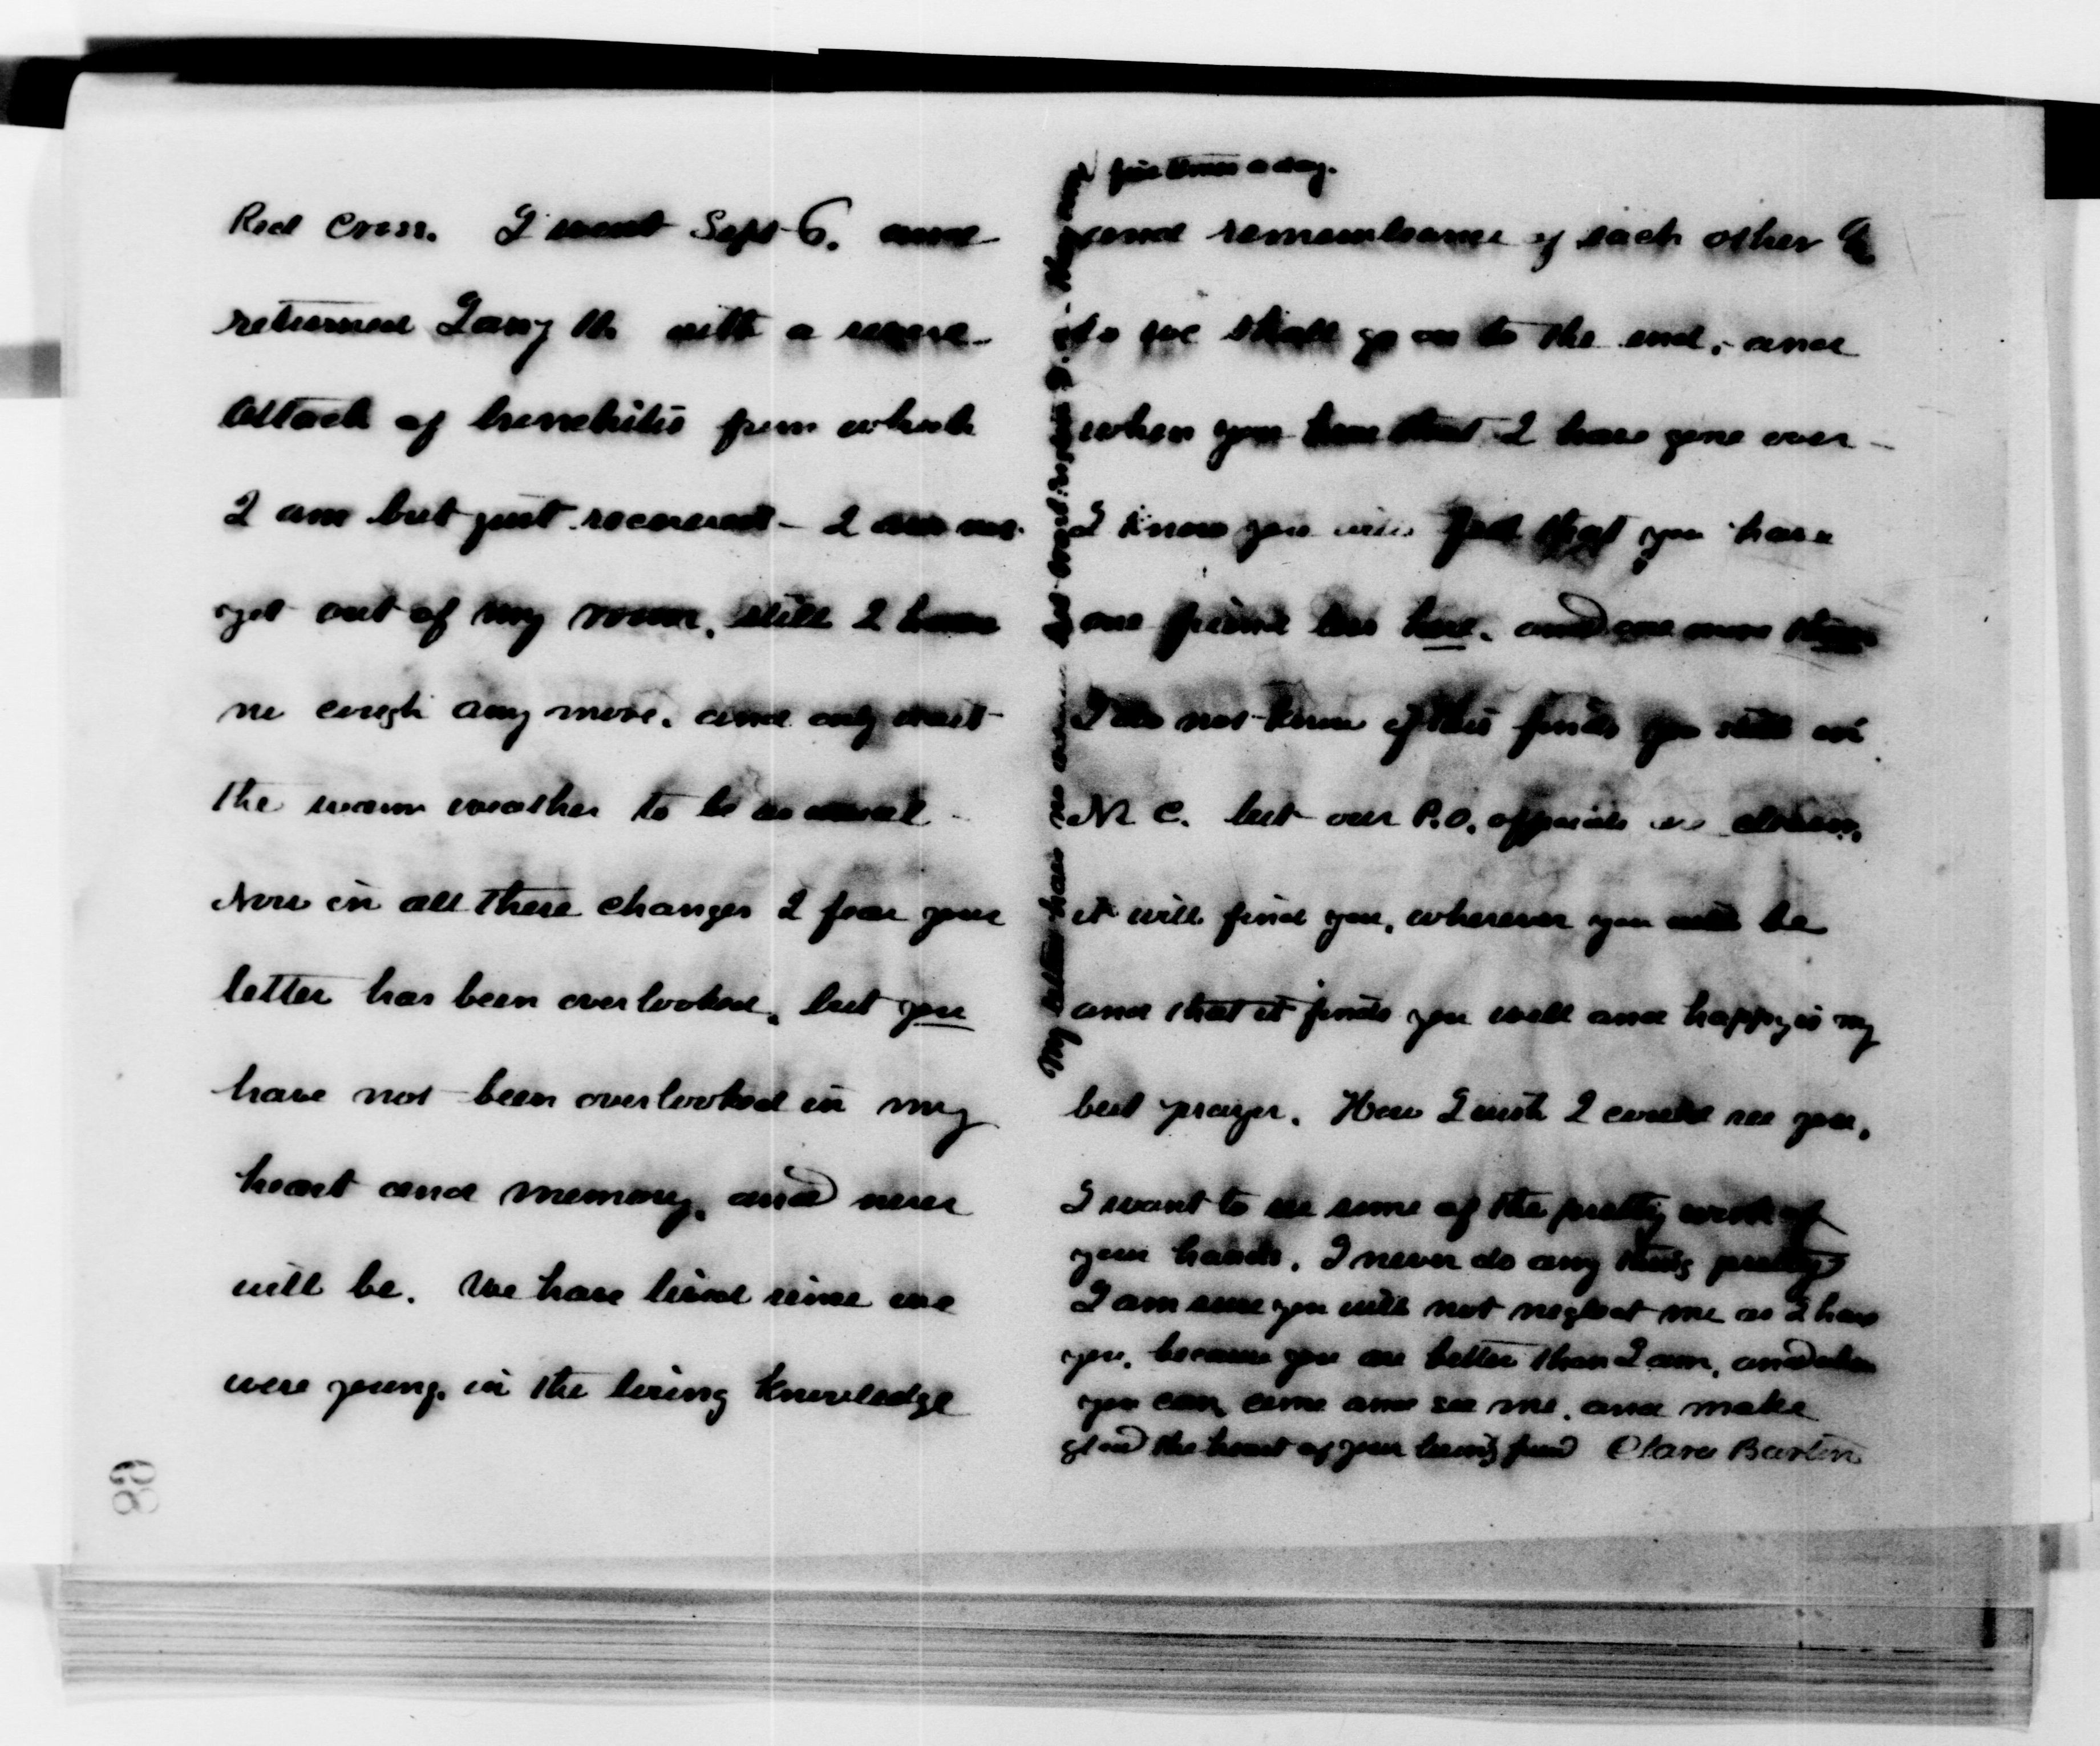 Red Cross. I went Sept 6. and
returned Jany 16 with a severe
attack of bronchitis from which
I am but just recovered - I am not
yet out of my room, still I have
no cough any more. and only wait
the warm weather to be as usual -
Now in all these changes I fear your
letter has been overlooked, but you
have not been overlooked in my
heart and memory, and never
will be. We have lived since we
were young, in the loving knowledge
and remembrance of each other &
so we shall go on to the end, - and
when you hear that I have gone over -
I know you will feel that you have
one friend less here. and one more there
I do not know if this finds you still in
N. C. but our P.O. officials are
it will find you, wherever you will be
and that it finds you well and happy is my
best prayer. How I wish I could see you,
I want to see some of the pretty work of
your hands. I never do any thing pretty
I am sure you will not neglect me as I have
you, because you are better than I am, and when
you can, come and see me, and make
glad the heart of your loving friend Clara Barton
My letters have no
five times a day.
68